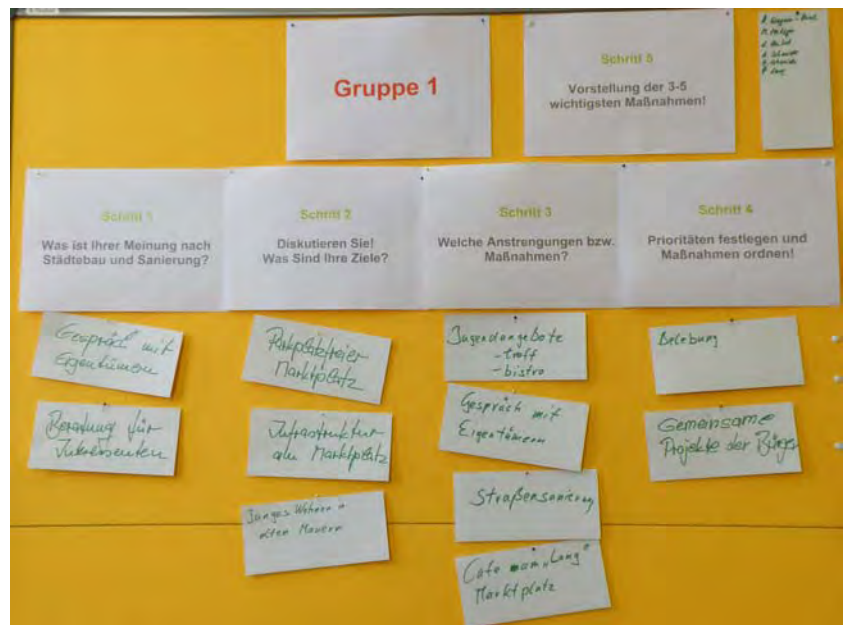 Gruppe 1
Schritt 5
Vorstellung der 3-5
wichtigsten Maßnahmen!
Schritt 1
Was ist Ihrer Meinung nach
Städtebau und Sanierung?
Schritt 2
Diskutieren Sie!
Was Sind Ihre Ziele?
Schritt 3
Welche Anstrengungen bzw.
Maßnahmen?
Schritt 4
Prioritäten festlegen und
Maßnahmen ordnen!
Gespräch mit
Eigentümern
Beratung für
Interessenten
Parkplatzfreier
Marktplatz
Infrastruktur
am Marktplatz
Junges Wohnen in
alten Mauern
Jugendangebote
-treff
-bistro
Gespräch mit
Eigentümern
Straßensanierung
Cafe am „Lang"
Marktplatz
Belebung
Gemeinsame
Projekte der Bürger